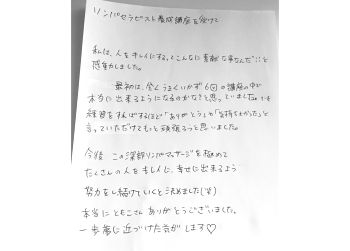 リンパセラピスト養成講座を受けて
私は、人をキレイにする、ってこんなに素敵な事なんだ"と
感動しました。
最初は、全くうまくいかず 6回の講座の中で
本当に出来るようになるのかな?と思っていました。でも
練習をすればするほど「ありがとう」や「気持ちよかった」と
言っていただけてもっと頑張ろうと思いました。
今後 この深部リンパマッサージを極めて
たくさんの人をキレイに、幸せに出来るよう
努力をし続けていくと決めました(^^)
本当に ともこさん ありがとうございました。
一歩 夢に近づけた気がします♡